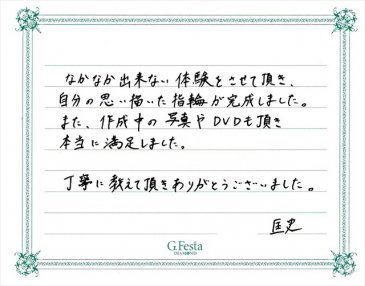 なかなか出来ない体験をさせて頂き、
自分の思い描いた指輪が完成しました。
また、作成中の写真やDVDも頂き
本当に満足しました。
丁寧に教えて頂きありがとうございました。
匡史
G.Festa
DIAMOND